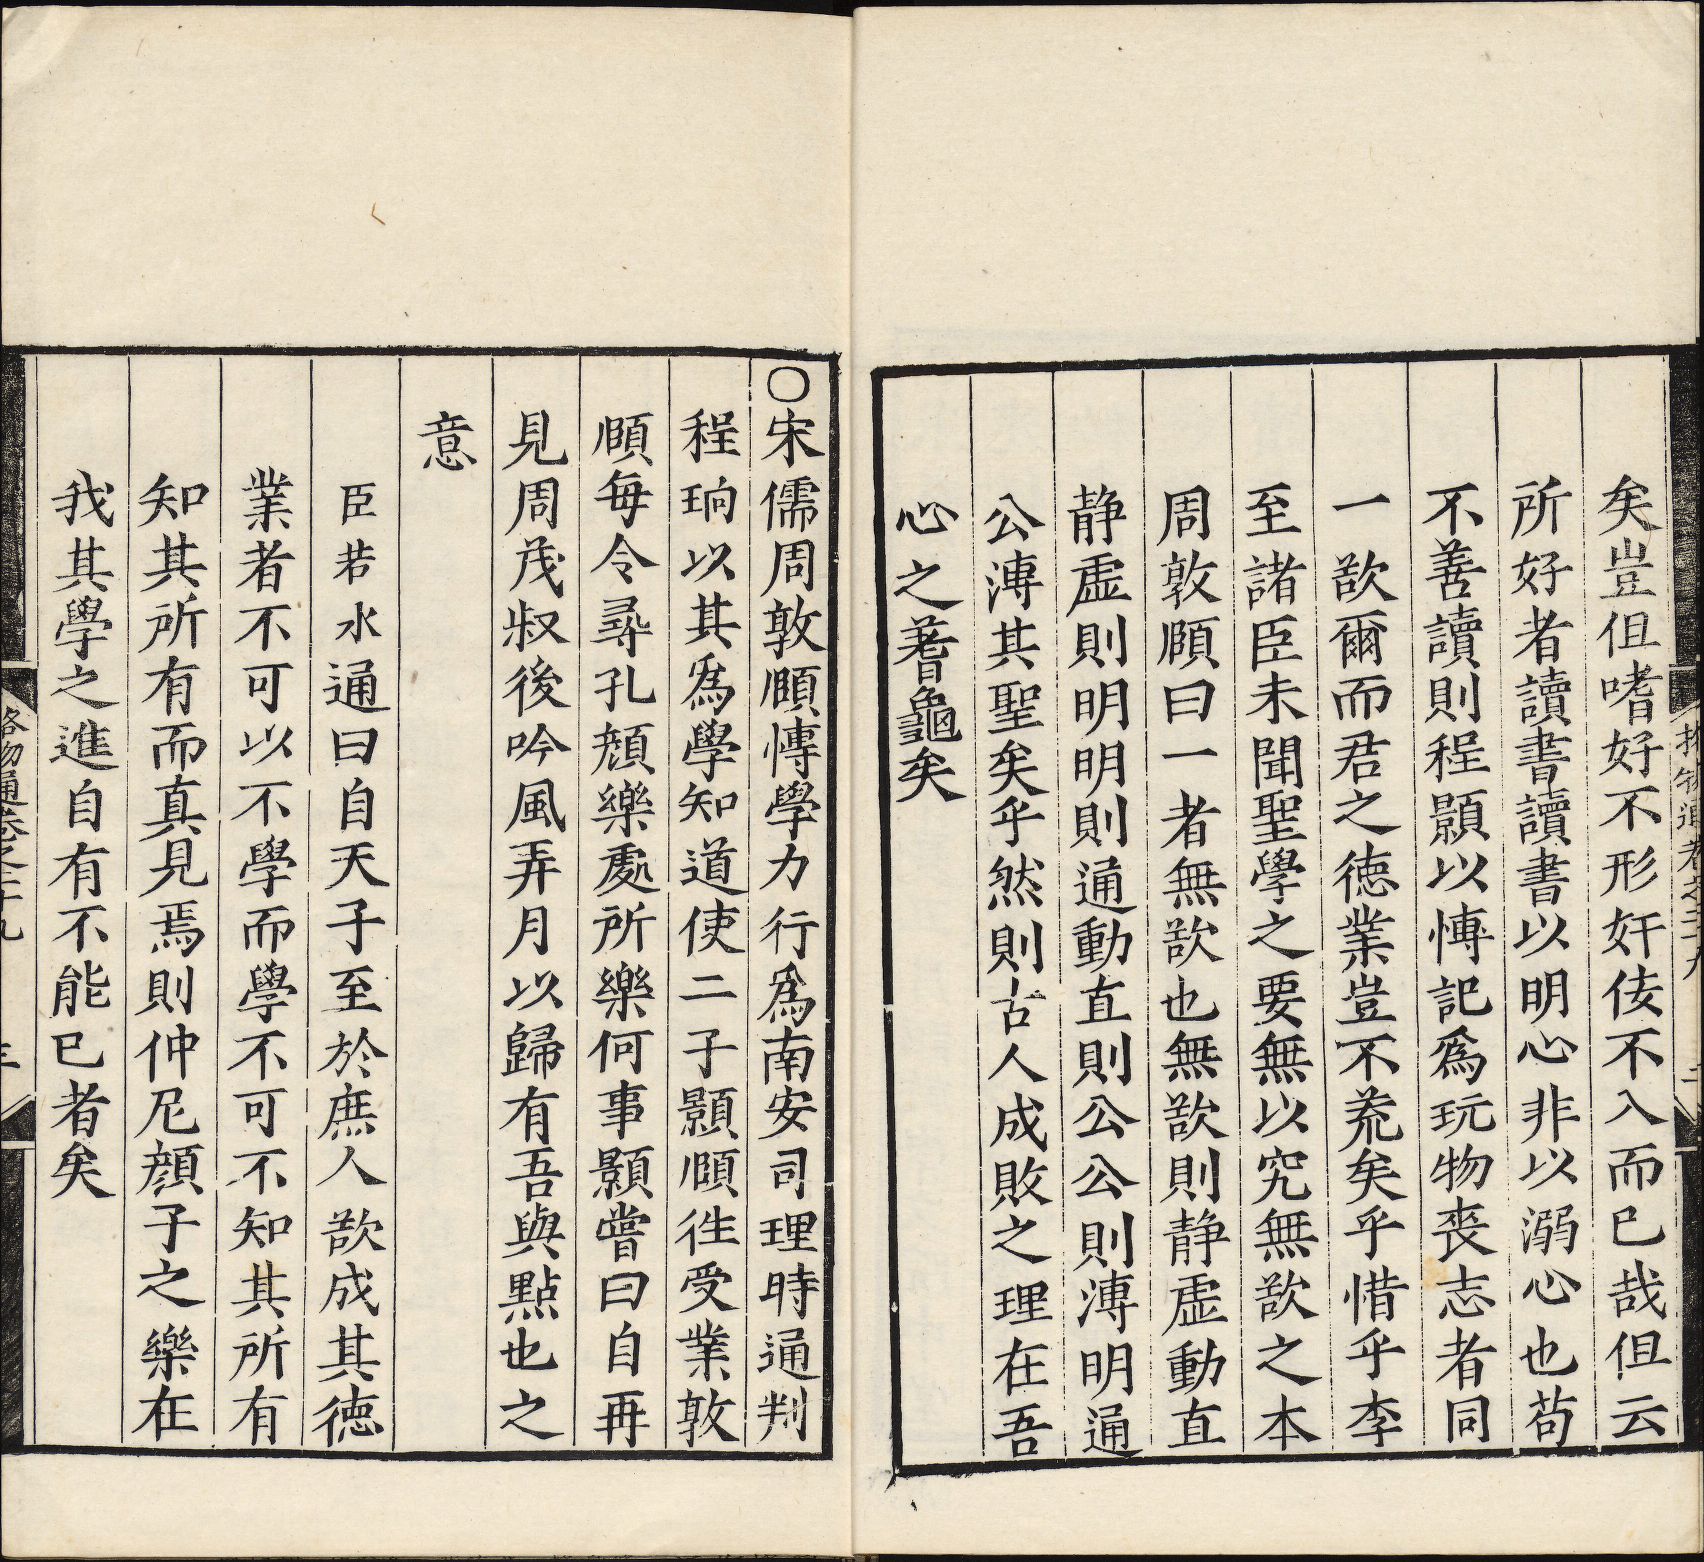 矣豈但嗜好不形奸佞不入而已哉但云
所好者讀書讀書以明心非以溺心也苟
不善讀則程顥以愽記爲玩物喪志者同
一欲爾而君之德業豈不荒矣乎惜乎李
至諸臣未聞聖學之要無以究無欲之本
周敦頥曰一者無欲也無欲則静虛動直
静虛則明明則通動直則公公則溥明通
公溥其聖矣乎然則古人成敗之理在吾
心之蓍龜矣
格物通卷之二十九 二
○宋儒周敦頥愽學力行爲南安司理時通判
程珦以其爲學知道使二子顥頥徃受業敦
頥每令尋孔顔樂處所樂何事顥嘗曰自再
見周茂叔後吟風弄月以歸有吾與點也之
意
臣若水通曰自天子至於庶人欲成其德
業者不可以不學而學不可不知其所有
知其所有而真見焉則仲尼顔子之樂在
我其學之進自有不能已者矣
格物通卷之二十九 三